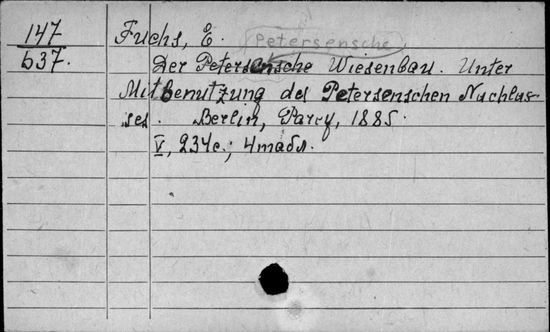 147
537.
Fuchs, E.
Petersensche
Der Petersensche Wiesenbau. Unter
Mitbenutzung des Petersenschen Nachlas-
ses. Berlin, Parey, 1885.
V, 234c.; 4табл.